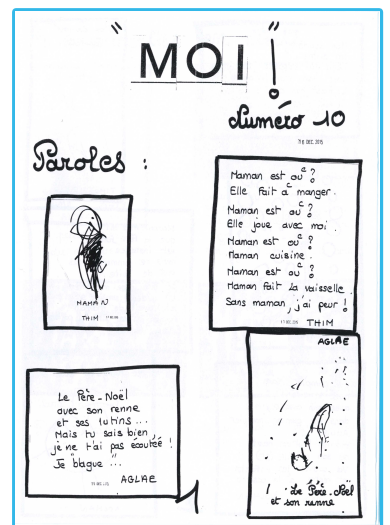 " MOI " !
Numéro 10
16 DEC. 2015
Paroles :
MAMAN
THIM
Maman est où ?
Elle fait à manger.
Maman est où ?
Elle joue avec moi.
Maman est où ?
Maman cuisine.
Maman est où ?
Maman fait la vaisselle.
Sans maman, j'ai peur !
THIM
AGLAE
Le Père-Noël
avec son renne
et ses lutins ...
Mais tu sais bien,
je ne t'ai pas écoutée !
Je "blague" ...
AGLAE
! Le Père-Noël
et son renne
1